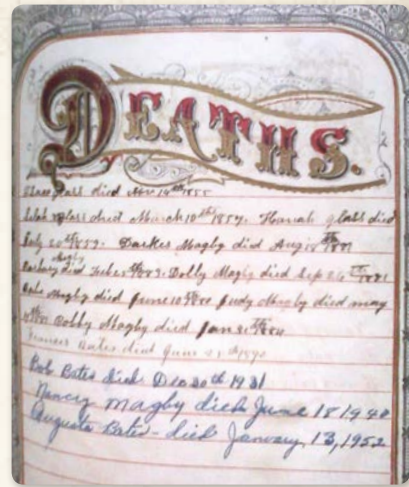 DEATHS.
Glass died Nov 14th 1855
Glass died March 10th 1857. Hanah Glass died
July 20th 1859. Darkes Magby died Aug 18th
Magby
died Feb 25th 1882. Dolly Magby died Sep 26th 1881
Magby died June 10th Judy Magby died may
Bobby Magby died Jan 21st 1884
Frances Bates died June 1890
Bob Bates died Dec 20th 1931
Nancy Magby died June 18 1940
Augusta Bates - died January, 13, 1952